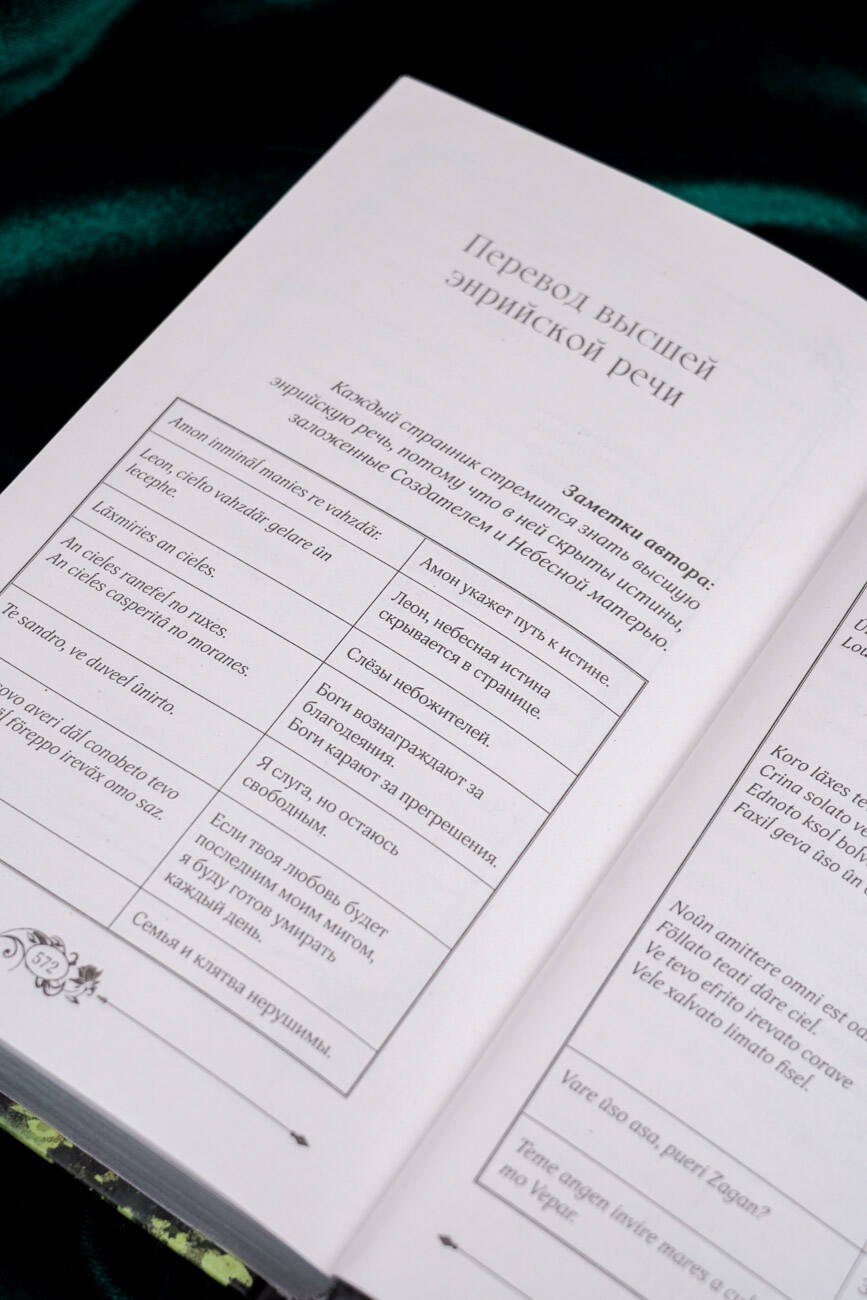 Перевод высшей
энрийской речи
Заметки автора:
Каждый странник стремится знать высшую
энрийскую речь, потому что в ней скрыты истины,
заложенные Создателем и Небесной матерью.
Amon inminäl manies re vahzdär.
Амон укажет путь к истине.
Leon, cielto vahzdär gelare ûn
lecephe.
Леон, небесная истина
скрывается в странице.
Läxmiries an cieles.
Слёзы небожителей.
An cieles ranefel no ruxes.
An cieles casperitâ no moranes.
Боги вознаграждают за
благодеяния.
Боги карают за прегрешения.
Te sandro, ve duveel ûnirto.
Я слуга, но остаюсь
свободным.
averi däl conobeto tevo
föreppo ireväx omo saz.
Если твоя любовь будет
последним моим мигом,
я буду готов умирать
каждый день.
Семья и клятва нерушимы.
572
Koro läxes
Crina solato
Ednoto ksol
Faxil geva ûso ûn
Noûn amittere omni est
Föllato teati däre ciel.
Ve tevo efrito irevato corave
Vele xalvato limato fisel.
Vare ûso asa, pueri Zagan?
Teme angen invire mares a
mo Vepar.